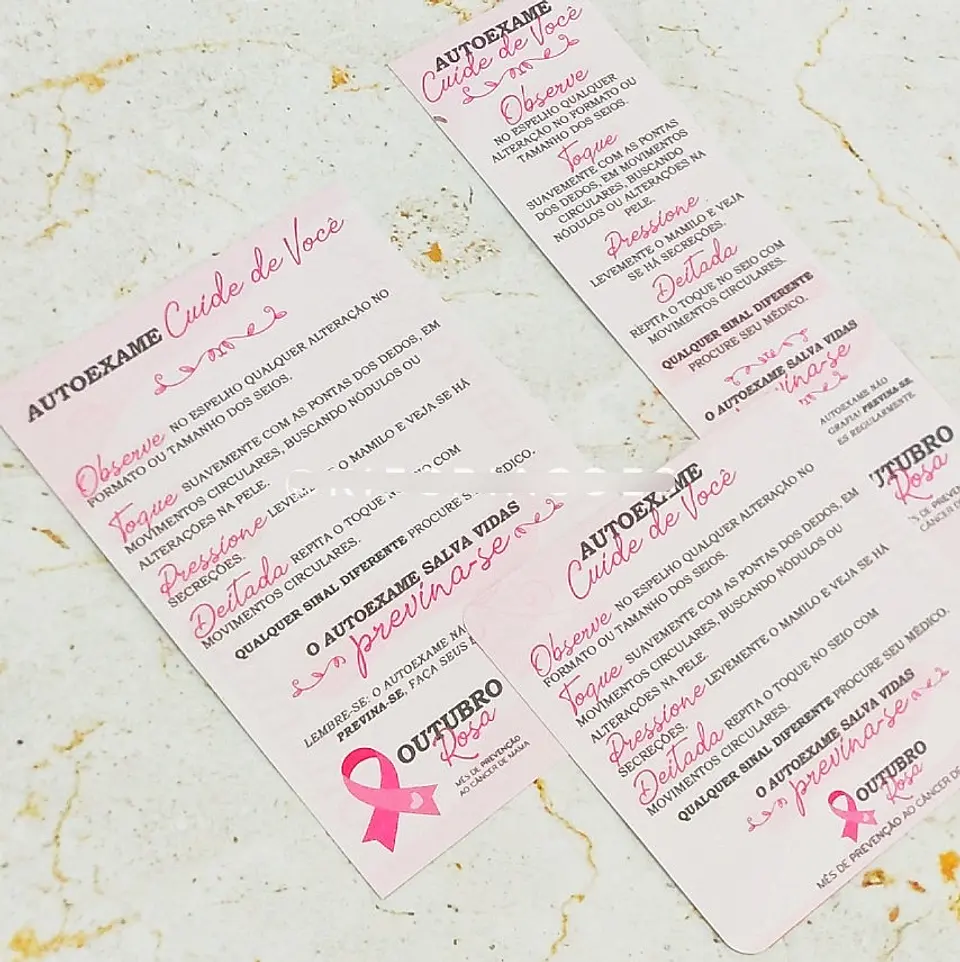 AUTOEXAME
Cuide de Você
Observe
NO ESPELHO QUALQUER
ALTERAÇÃO NO FORMATO OU
TAMANHO DOS SEIOS.
Toque
SUAVEMENTE COM AS PONTAS
DOS DEDOS, EM MOVIMENTOS
CIRCULARES, BUSCANDO
NÓDULOS OU ALTERAÇÕES NA
PELE.
Pressione
LEVEMENTE O MAMILO E VEJA
SE HÁ SECREÇÕES.
Deitada
REPITA O TOQUE NO SEIO COM
MOVIMENTOS CIRCULARES.
QUALQUER SINAL DIFERENTE
PROCURE SEU MÉDICO.
O AUTOEXAME SALVA VIDAS
AUTOEXAME NÃO
PREVINA-SE,
REGULARMENTE.
Rosa
DE PREVENÇÃO
AUTOEXAME Cuide de Você
Observe NO ESPELHO QUALQUER ALTERAÇÃO NO
FORMATO OU TAMANHO DOS SEIOS.
Toque SUAVEMENTE COM AS PONTAS DOS DEDOS, EM
MOVIMENTOS CIRCULARES, BUSCANDO NÓDULOS OU
ALTERAÇÕES NA PELE.
Pressione O MAMILO E VEJA SE HÁ
SECREÇÕES.
Deitada REPITA O TOQUE COM
MOVIMENTOS CIRCULARES.
QUALQUER SINAL DIFERENTE PROCURE
O AUTOEXAME SALVA VIDAS
previna-se
LEMBRE-SE: O AUTOEXAME
PREVINA-SE, FAÇA SEUS
OUTUBRO
Rosa
MÊS DE PREVENÇÃO
AO CÂNCER DE MAMA
AUTOEXAME
Cuide de Você
Observe NO ESPELHO QUALQUER ALTERAÇÃO NO
FORMATO OU TAMANHO DOS SEIOS.
Toque SUAVEMENTE COM AS PONTAS DOS DEDOS, EM
MOVIMENTOS CIRCULARES, BUSCANDO NÓDULOS OU
ALTERAÇÕES NA PELE.
Pressione LEVEMENTE O MAMILO E VEJA SE HÁ
SECREÇÕES.
Deitada REPITA O TOQUE NO SEIO COM
MOVIMENTOS CIRCULARES.
QUALQUER SINAL DIFERENTE PROCURE SEU MÉDICO.
O AUTOEXAME SALVA VIDAS
previna-se
OUTUBRO
Rosa
MÊS DE PREVENÇÃO AO CÂNCER DE